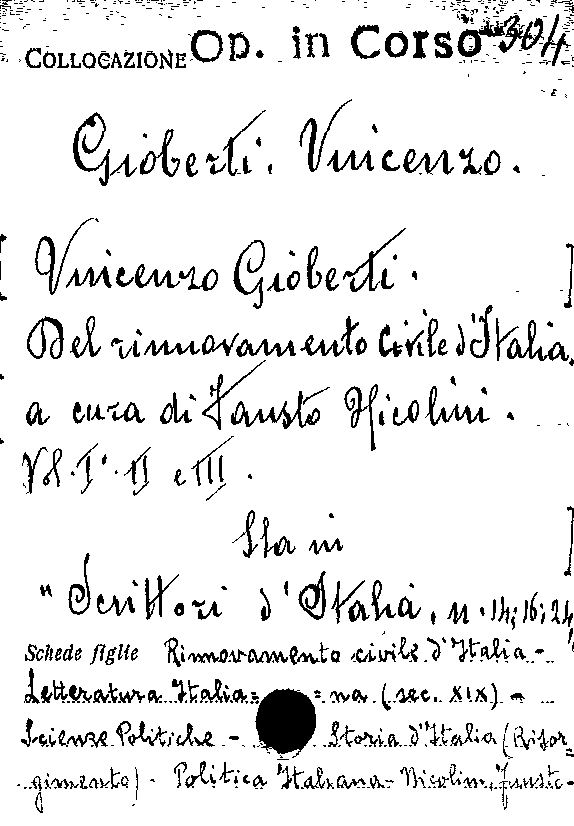 COLLOCAZIONE Op. in Corso 304
Gioberti. Vincenzo.
Vincenzo Gioberti.
Del rinnovamento civile d'Italia.
a cura di Fausto Nicolini.
Vol. I°. II e III.
Sta in
"Scrittori d'Italia, n. 14; 16; 24
Schede figlie Rinnovamento civile d'Italia -
Letteratura Italia= =na (sec. XIX) -
Scienze Politiche - Storia d'Italia (Risor=
gimento). Politica Italiana - Nicolini, Fausto -